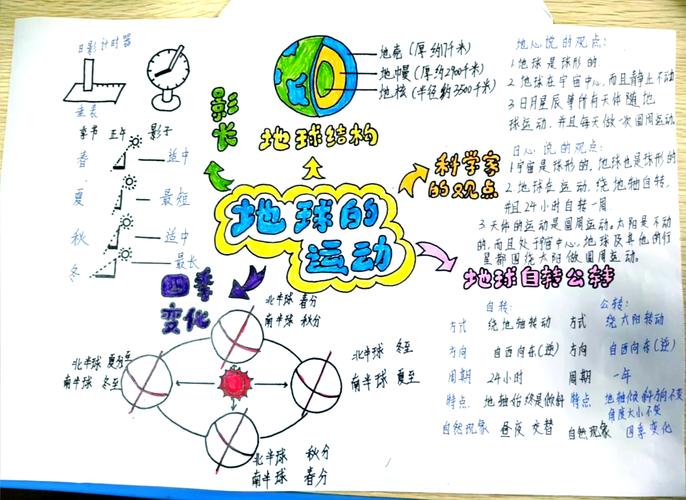 地球的
运动
影长
日影计时器
圭表
季节 正午 影子
春 适中
夏 最短
秋 适中
冬 最长
地球结构
地壳(厚约17千米)
地中幔(厚约2900千米)
地核(半径约3500千米)
科学家
的观点
地心说的观点:
1.地球是球形的
2.地球在宇宙中心,而且静止不动
3.日月星辰等所有天体随地
球运动,并且每天做一次圆周运动.
日心说的观点:
1.宇宙是球形的,地球也是球形的
2.地球在运动,绕地轴自转,
并且24小时自转一周.
3.天体的运动是圆周运动。太阳是不动
的,而且处于宇宙中心,地球及其他的行
星都围绕太阳做圆周运动。
四季
变化
北半球 春分
南半球 秋分
北半球 夏至
南半球 冬至
北半球 冬至
南半球 夏至
北半球 秋分
南半球 春分
地球自转公转
自转:
方式 绕地轴转动
方向 自西向东(逆)
周期 24小时
特点 地轴始终是倾斜
自然现象 昼夜交替
公转:
方式 绕太阳转动
方向 自西向东(逆)
周期 一年
特点 地轴倾斜方向不变
角度大小不变
自然现象 四季变化